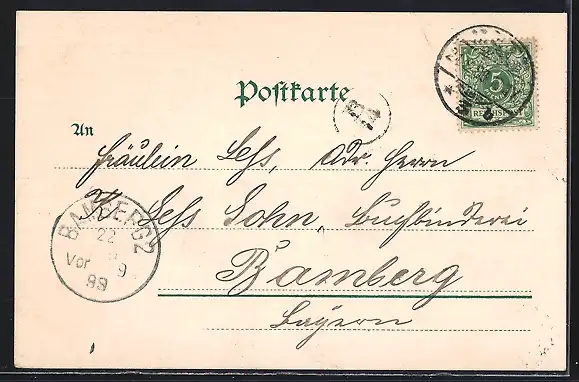 Postkarte
An
Fräulein Less, Adr. Herrn
K. Less Sohn, Buchbinderei
Bamberg
Bayern
BAMBERG 2
22
9
Vor
99
5
REICHSPOST